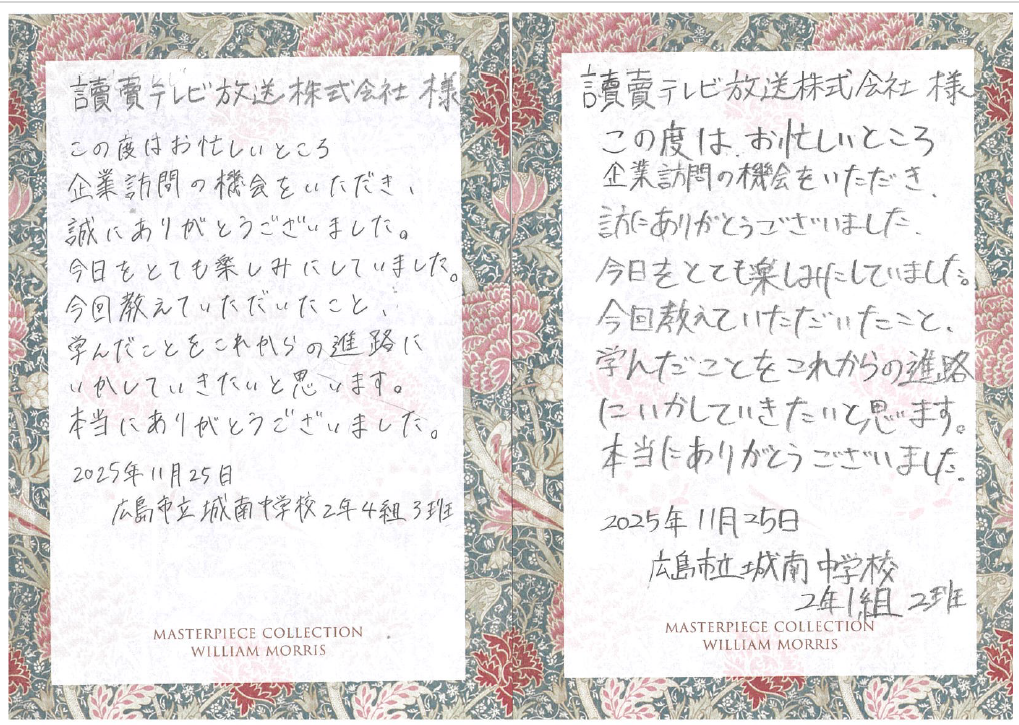 讀賣テレビ放送株式会社 様
この度はお忙しいところ
企業訪問の機会をいただき、
誠にありがとうございました。
今日をとても楽しみにしていました。
今回教えていただいたこと、
学んだことをこれからの進路に
いかしていきたいと思います。
本当にありがとうございました。
2025年11月25日
広島市立城南中学校2年4組3班
MASTERPIECE COLLECTION
WILLIAM MORRIS
讀賣テレビ放送株式会社 様
この度は、お忙しいところ
企業訪問の機会をいただき、
訪にありがとうございました。
今日をとても楽しみにしていました。
今回教えていただいたこと、
学んだことをこれからの進路
にいかしていきたいと思います。
本当にありがとうございました。
2025年11月25日
広島市立城南中学校
2年1組 2班
MASTERPIECE COLLECTION
WILLIAM MORRIS